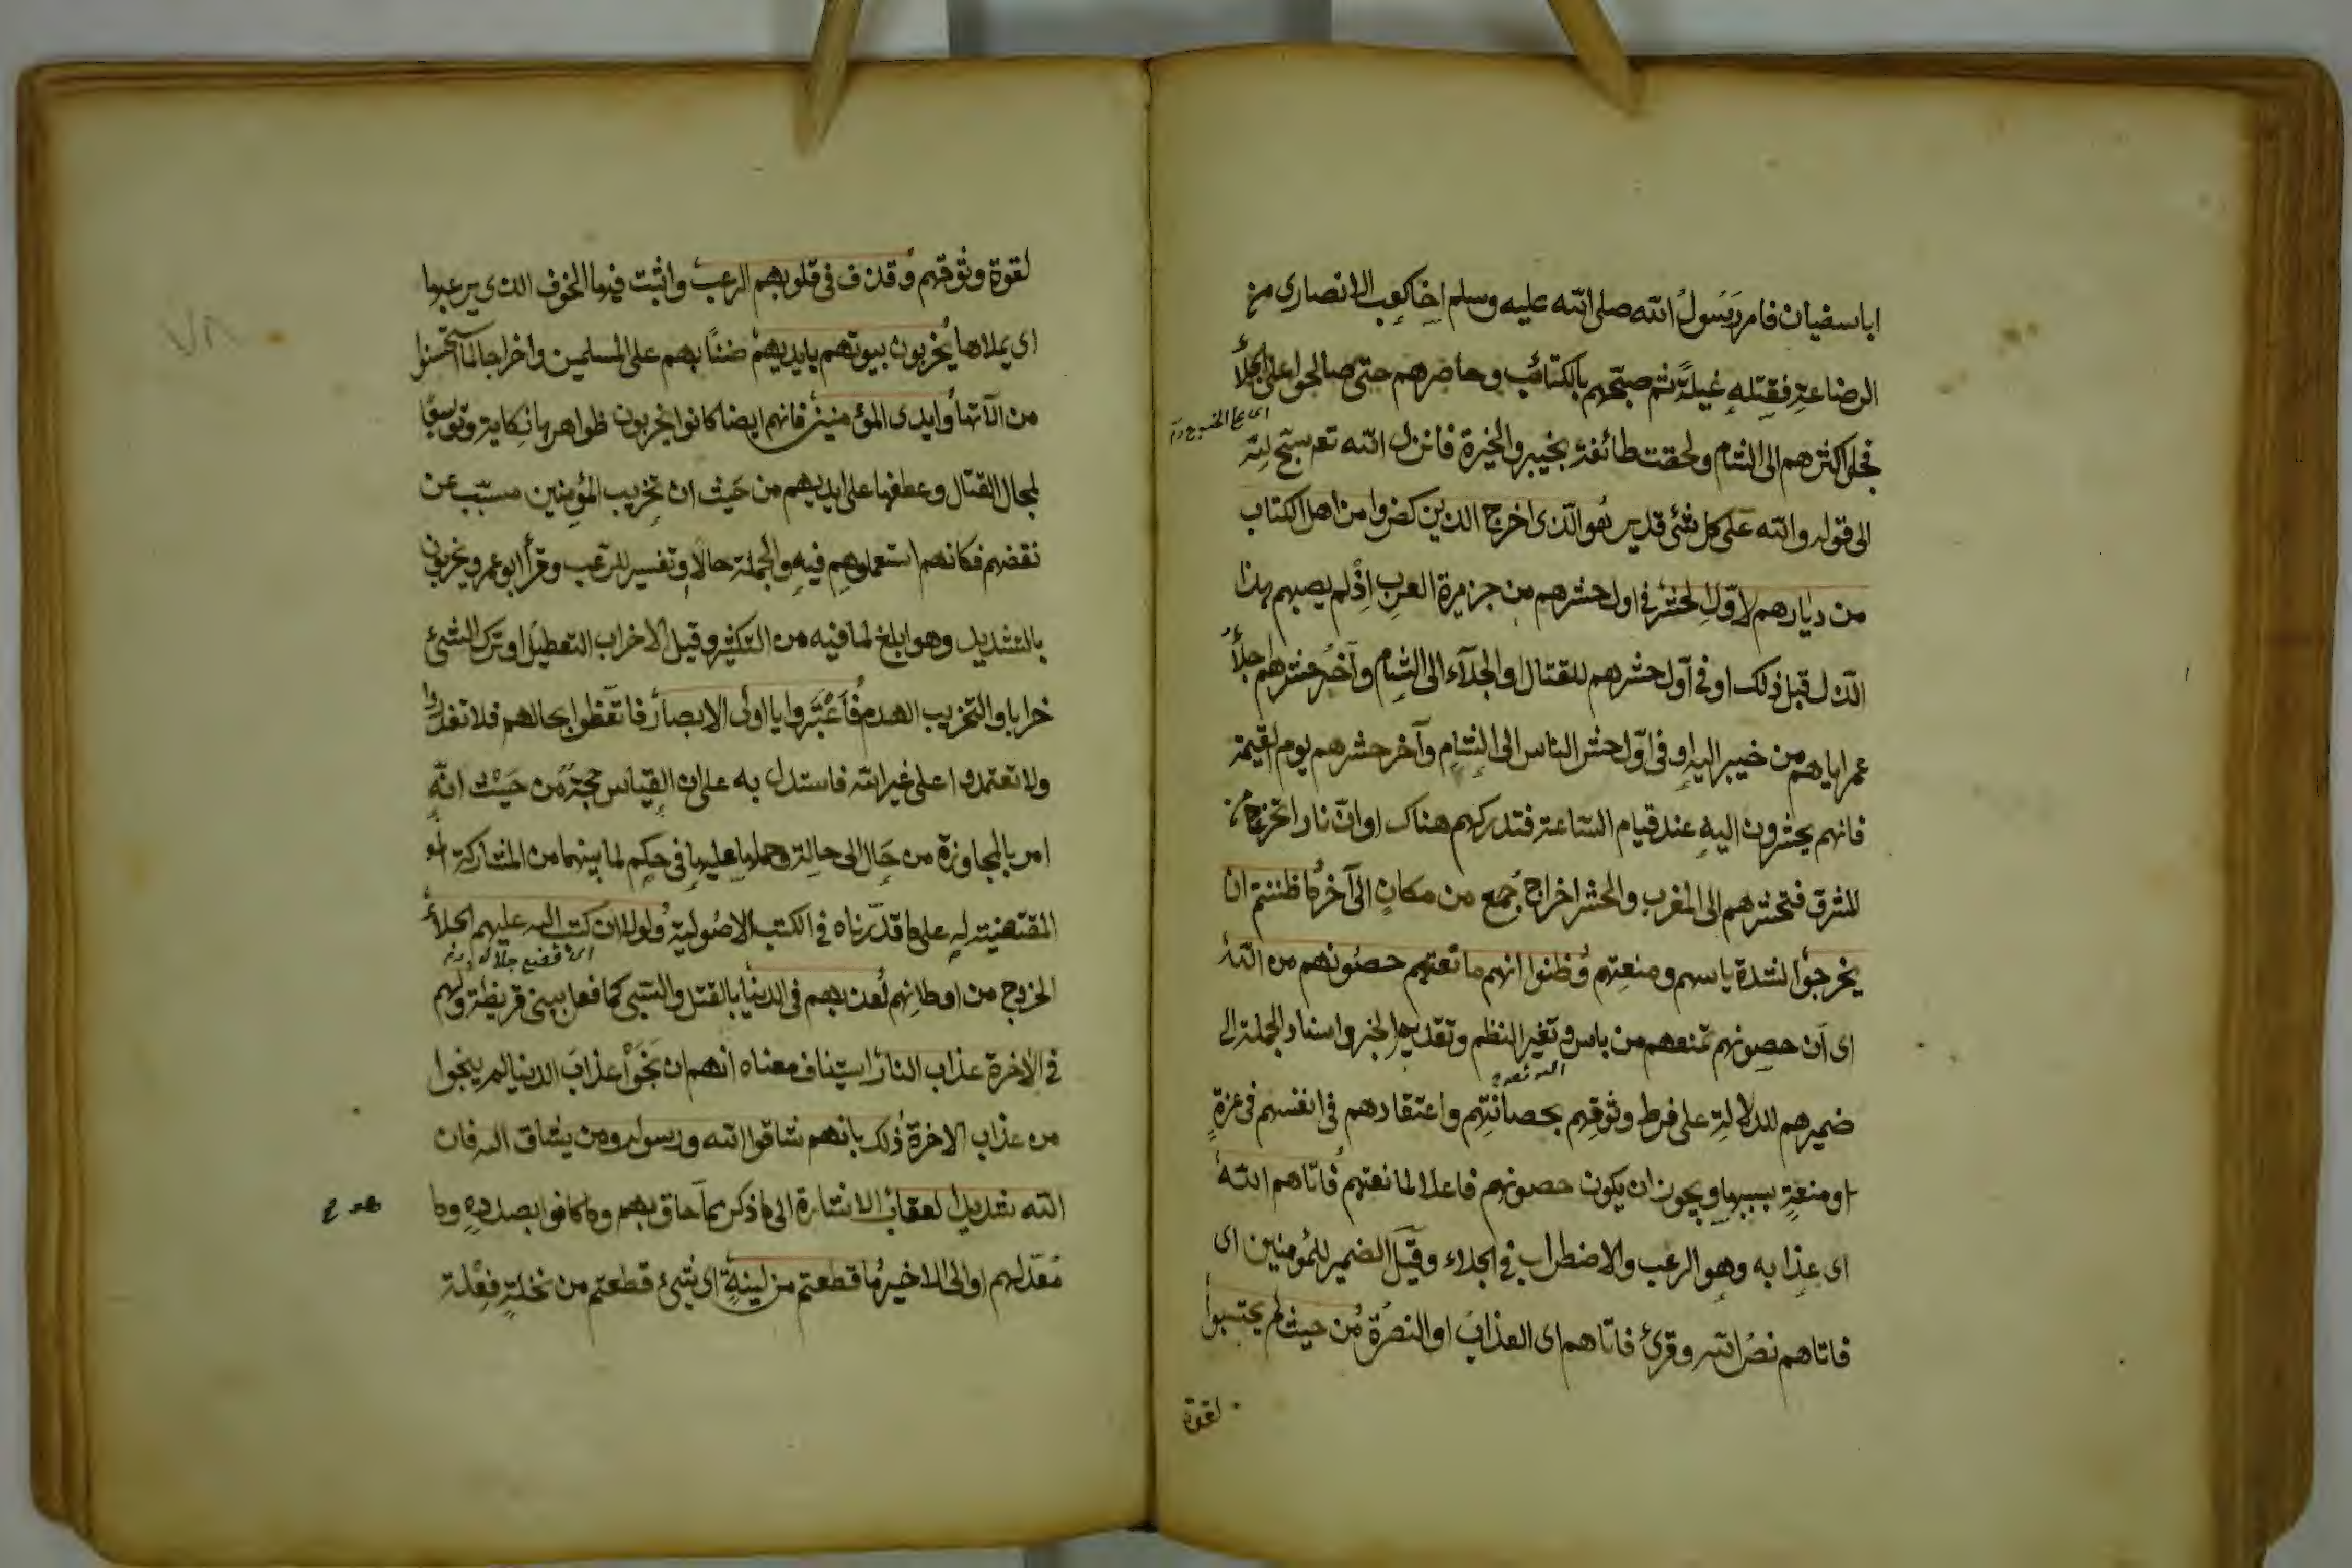 ابا سفيان فامر رَسُولُ الله صلى الله عليه وسلم اخا كعب الانصارى من
الرضاعة فقتله غيلةً ثم صبّحهم بالكتائب وحاصرهم حتى صالحوا على الجلأ
فجلا اكثرهم الى الشام ولحقت طائفة بخيبر والحيرة فانزل الله تع سبّح لله
الى قوله والله على كل شئ قدير هُو الّذى اخرج الذين كفروا من اهل الكتاب
من ديارهم لاوّل الحشر فى اول حشرهم من جزيرة العرب اذْ لم يصبهم هذا
الذل قبل ذلك او فى اول حشرهم للقتال او الجلاء الى الشام وآخر حشرهم جلأ
عمر اياهم من خيبر اليه او فى اوّل حشر الناس الى الشام وآخر حشرهم يوم القيمة
فانهم يحشرون اليه عند قيام الساعة فتدركهم هناك او انّ نارا تخرج من
المشرق فتحشرهم الى المغرب والحشر اخراج جمع من مكان الى آخر ما ظننتم ان
يخرجوا لشدة باسهم ومنعتهم وظنوا انهم مانعتهم حصونهم من الله
اى ان حصونهم تمنعهم من باس وتغير النظم وتقديم الخبر واسناد الجملة الى
ضميرهم للدلالة على فرط وثوقهم بحصانتهم واعتقادهم فى انفسهم فى عزة
او منعةٍ بسببها ويجوز ان يكون حصونهم فاعلا لمانعتهم فاتاهم الله
اى عذابه وهو الرعب والاضطراب فى الجلاء وقيل الضمير للمؤمنين اى
فاتاهم نصر الله وقرئ فاتاهم اى العذاب او النصرة من حيث لم يحتسبوا
لقوة
لقوة وثوقهم وقذف فى قلوبهم الرعب واثبت فيها الخوف الذى يرعبها
اى يملاها يُخربون بيوتهم بايديهم ضنّاً بهم على المسلمين واخراجا لما استحسنوا
من الآتها وايدى المؤمنين فانهم ايضا كانوا يخربون ظواهرها نكاية وتوسيعًا
لمجال القتال وعطفها على ايديهم من حَيث ان تخريب المؤمنين مسبّب عن
نقضهم فكانهم استعملوهم فيه والجملة حال او تفسير للرعب وقرأ ابو عمرو يخربون
بالتشديد وهو ابلغ لما فيه من التكثير وقيل الاخراب التعطيل او ترك الشئ
خرابا والتخريب الهدم فَاعْتَبروا يا اولى الابصار فاتعظوا بحالهم فلا تغدروا
ولا تعتمدوا على غير الله فاستدل به على ان القياس حجة من حَيْث انّه
امر بالمجاوزة من حَال الى حالة وحملها عليها فى حكم لما بينهما من المشاركة
المقتضية له على ما قدّرناه فى الكتب الاصُولية ولولا ان كتب الله عليهم الجلأ
الخروج من اوطانهم لعذبهم فى الدنيا بالقتل والسبى كما فعل ببنى قريظة ولهم
فى الاخرة عذاب النار استيناف معناه انهم ان نَجَوْا عذابَ الدنيا لم ينجوا
من عذاب الاخرة ذلك بانهم شاقوا الله ورسوله ومن يشاق الله فان
الله شديد العقاب الاشارة الى ما ذكر مما حاق بهم وما كانوا بصدده وما
مُعَدّ لهم او الى الاخير ما قطعتم من لينةٍ اى شئ قطعتم من نخلةٍ فعْلة